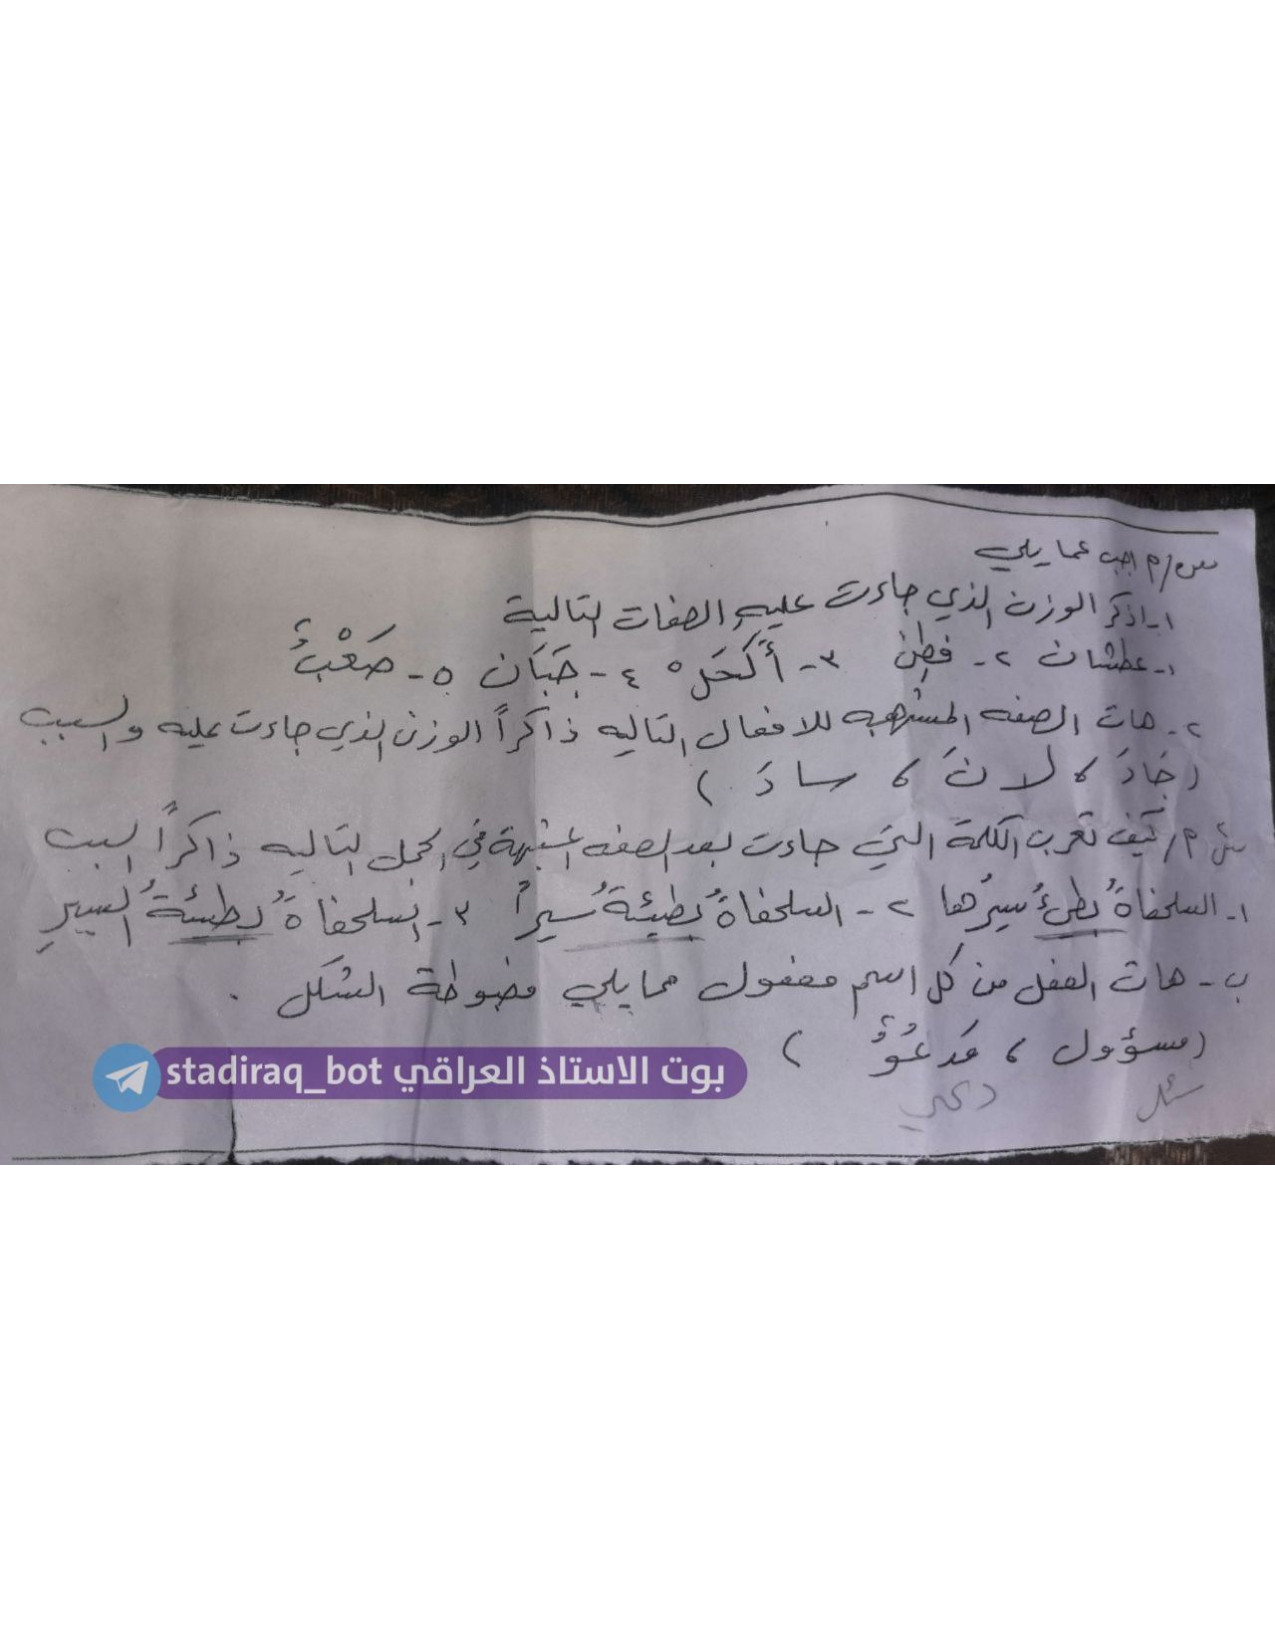 س١/م اجب عما يلي
١- اذكر الوزن الذي جاءت عليه الصفات التالية
١- عطشان ٢- فطِن ٣- أَكحَل ٤- جَبَان ٥- صَعْبٌ
٢- هات الصفه المشبهه للافعال التاليه ذاكراً الوزن الذي جاءت عليه والسبب
(جَادَ ، لانَ ، سادَ )
م/ كيف تعرب الكلمة التي جاءت بعد الصفه المشبهة في الجمل التاليه ذاكراً السبب
١- السلحفاةُ بطيءٌ سيرُها ٢- السلحفاةُ بطيئةٌ سيراً ٣- السلحفاةُ بطيئةُ السيرِ
ب- هات الفعل من كل اسم مفعول مما يلي مضبوطة الشكل .
(مسؤول ، مَدعُوٌّ )
سئل دعي
بوت الاستاذ العراقي stadiraq_bot